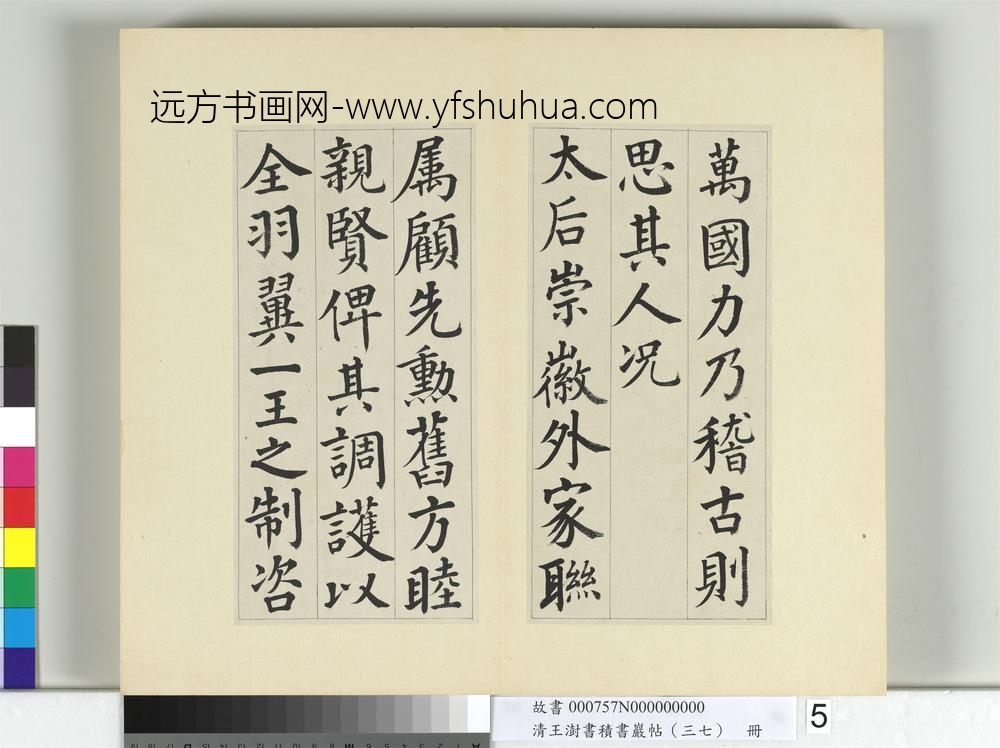 远方书画网-www.yfshuhua.com
萬國力乃稽古則
思其人况
太后崇徽外家聯
属顧先勲舊方睦
親賢俾其調護以
全羽翼一王之制咨
故書 000757N000000000
清王澍書積書巖帖（三七） 冊
5